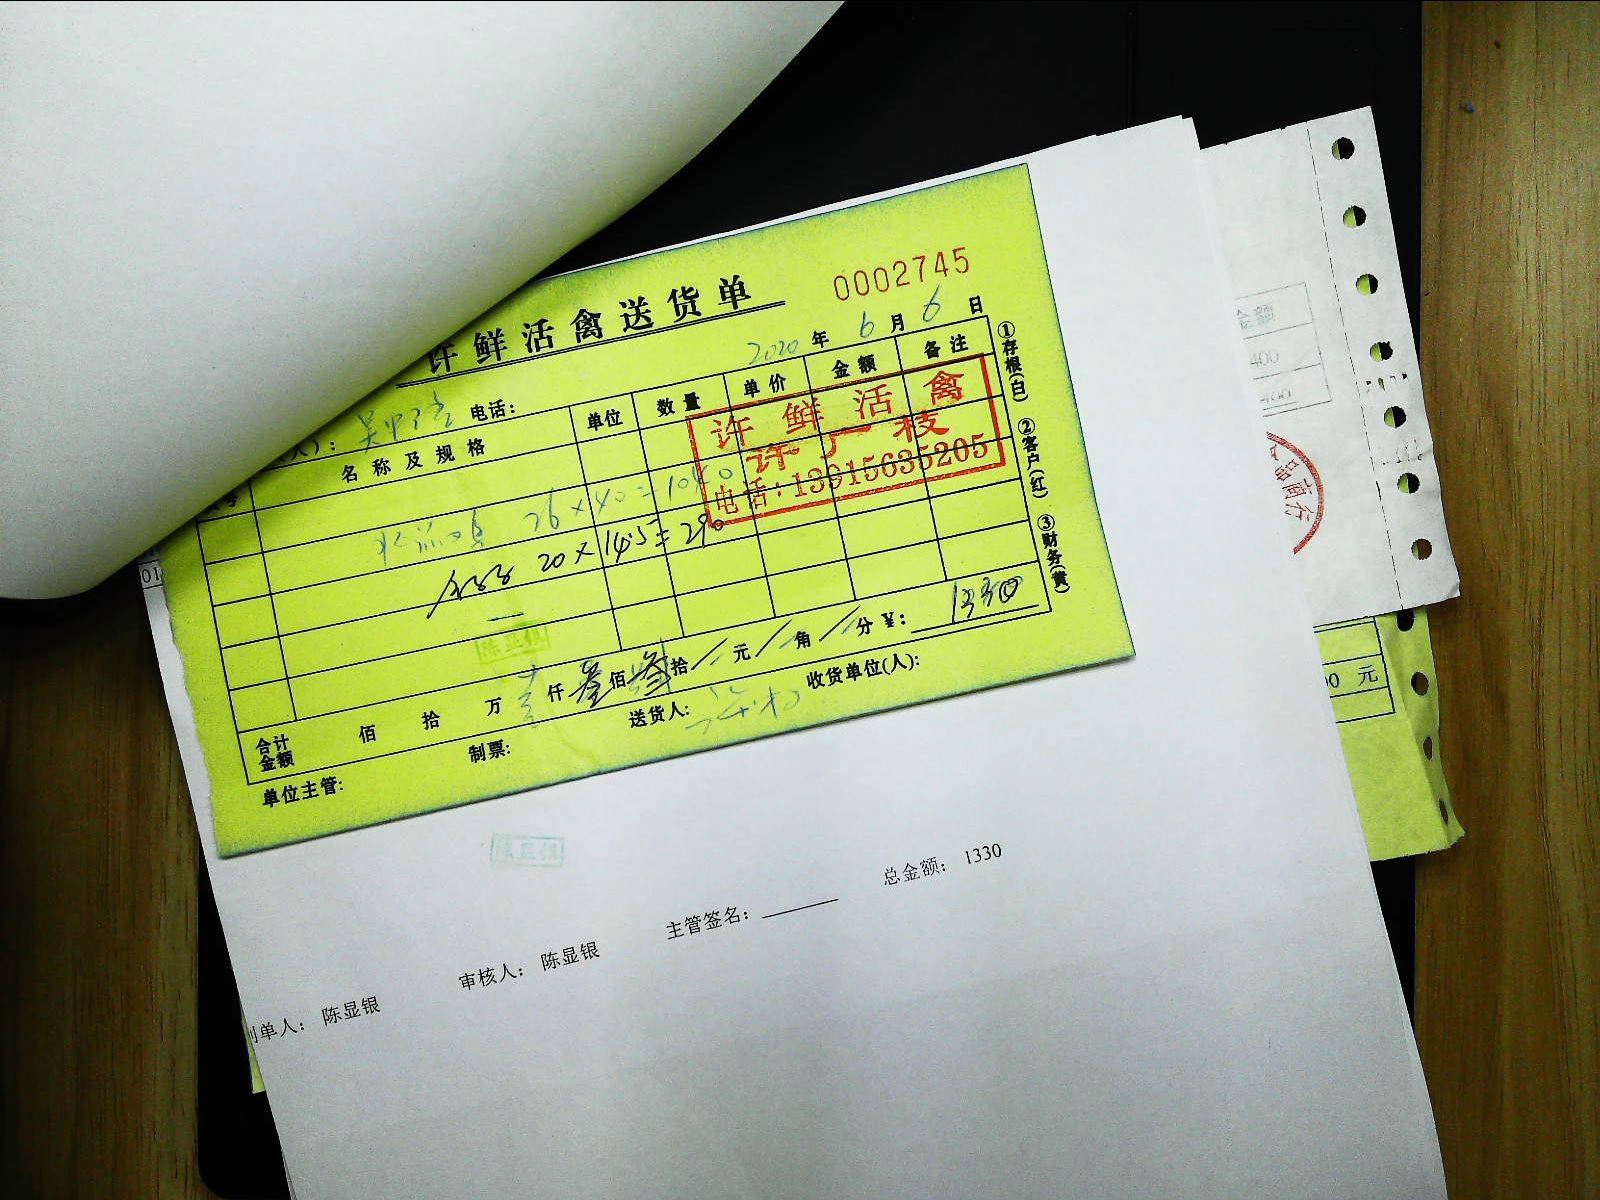 许鲜活禽送货单
0002745
2020年6月6日
电话：
名称及规格 单位 数量 单价 金额 备注
许鲜活禽
许广枝
电话：13915635205
26×40=1040
20×14.5=290
合计金额 佰 拾 万 壹仟叁佰叁拾 元 角 分 ¥：1330
单位主管： 制票： 送货人： 收货单位(人)：
①存根(白) ②客户(红) ③财务(黄)
总金额： 1330
主管签名：
审核人： 陈显银
制单人： 陈显银
金额
400
400
品商行
元
01